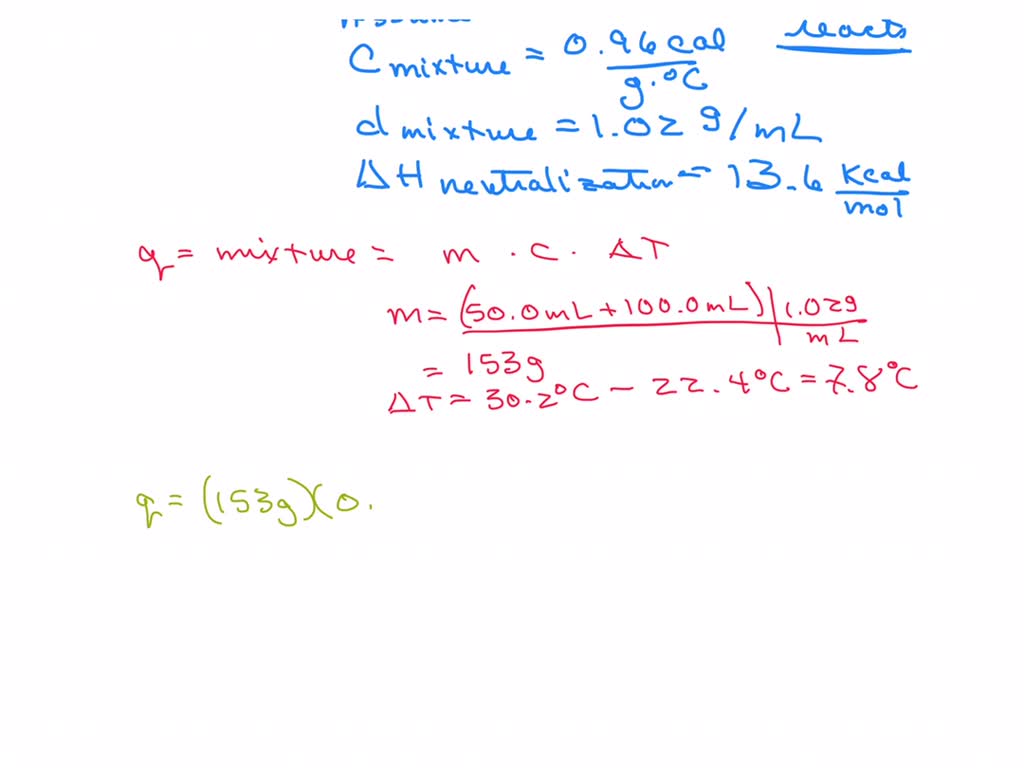 C mixture = 0.96 cal / g·°C reacts
d mixture = 1.02 g/mL
ΔH neutralization = 13.6 Kcal / mol
q = mixture = m · C · ΔT
m = (50.0mL + 100.0mL) | 1.02g / mL
= 153g
ΔT = 30.2°C - 22.4°C = 7.8°C
q = (153g)(0.